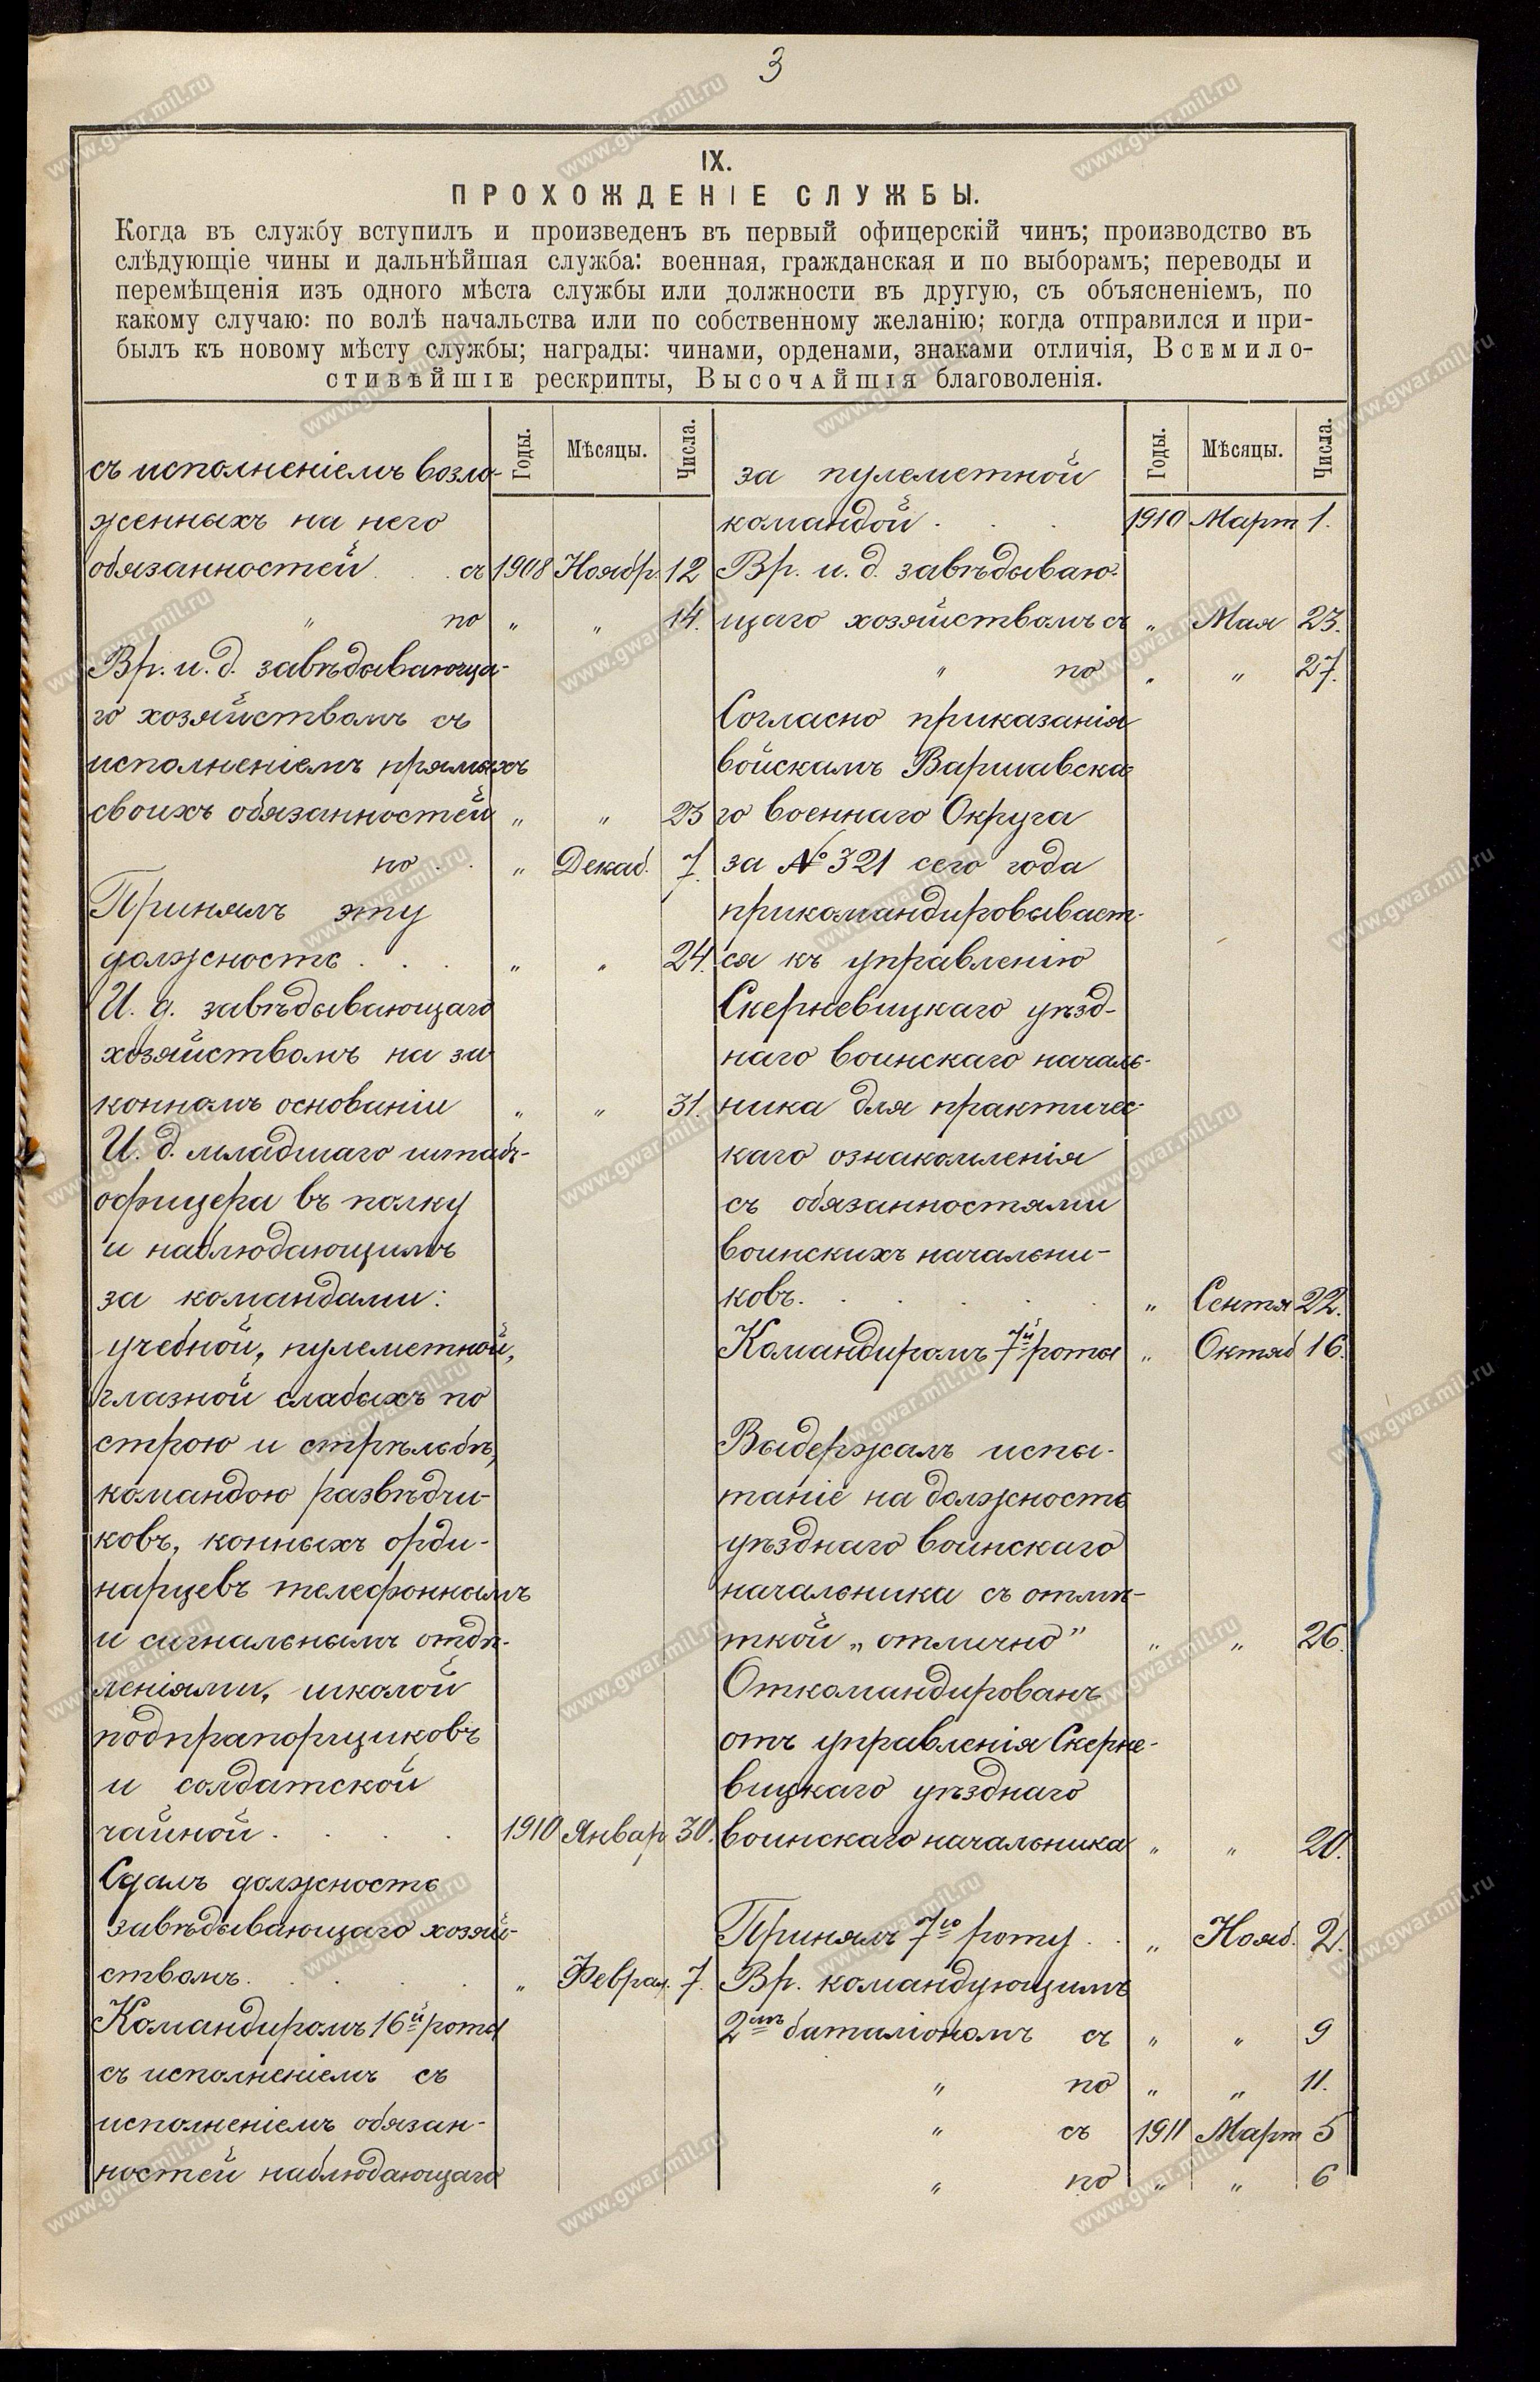 3
IX.
ПРОХОЖДЕНІЕ СЛУЖБЫ.
Когда въ службу вступилъ и произведенъ въ первый офицерскій чинъ; производство въ
слѣдующіе чины и дальнѣйшая служба: военная, гражданская и по выборамъ; переводы и
перемѣщенія изъ одного мѣста службы или должности въ другую, съ объясненіемъ, по
какому случаю: по волѣ начальства или по собственному желанію; когда отправился и при-
былъ къ новому мѣсту службы; награды: чинами, орденами, знаками отличія, Всемило-
стивѣйшіе рескрипты, Высочайшія благоволенія.
Годы. Мѣсяцы. Числа.
съ исполненіемъ возло-
женныхъ на него
обязанностей . . съ 1908 Ноябр. 12
" по " " 14.
Вр. и. д. завѣдывающа-
го хозяйствомъ съ
исполненіемъ прямыхъ
своихъ обязанностей " " 23
по . . " Декаб. 7.
Принялъ эту
должность . . . " " 24.
И. д. завѣдывающаго
хозяйствомъ на за
конномъ основаніи " " 31.
И. д. младшаго штабъ-
офицера въ полку
и наблюдающимъ
за командами:
учебной, пулеметной,
глазной слабыхъ по
строю и стрѣльбѣ,
командою развѣдчи-
ковъ, конныхъ орди-
нарцевъ телефоннымъ
и сигнальнымъ отдѣ-
леніями, школой
подпрапорщиковъ
и солдатской
чайной . . . . 1910 Январ. 30.
Сдалъ должность
завѣдывающаго хозяй-
ствомъ . . . . " Феврал. 7.
Командиромъ 16й роты
съ исполненіемъ съ
исполненіемъ обязан-
ностей наблюдающаго
Годы. Мѣсяцы. Числа.
за пулеметной
командой . . . 1910 Март 1.
Вр. и. д. завѣдываю-
щаго хозяйствомъ съ " Мая 23.
" по " " 27.
Согласно приказанія
войскамъ Варшавска-
го военнаго Округа
за № 321 сего года
прикомандировывает-
ся къ управленію
Скерневицкаго уѣзд-
наго воинскаго началь-
ника для практичес-
каго ознакомленія
съ обязанностями
воинскихъ начальни-
ковъ. . . . . " Сентя 22.
Командиромъ 7й роты " Октяб 16.
Выдержалъ испы-
таніе на должность
уѣзднаго воинскаго
начальника съ отмѣ-
ткой „отлично" " " 26.
Откомандированъ
отъ управленія Скерне-
вицкаго уѣзднаго
воинскаго начальника " " 20.
Принялъ 7ю роту . . " Нояб. 2.
Вр. командующимъ
2мъ баталіономъ съ " " 9
" по " " 11.
" съ 1911 Март 5
" по " " 6
www.gwar.mil.ru